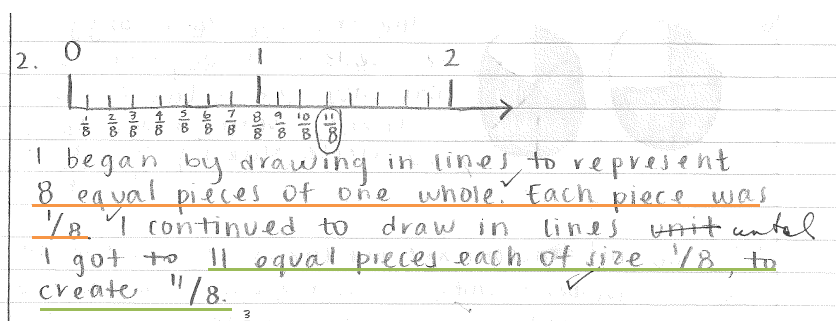 0 1 2
2.
1/8 2/8 3/8 4/8 5/8 6/8 7/8 8/8 9/8 10/8 11/8
I began by drawing in lines to represent
8 equal pieces of one whole. Each piece was
1/8. I continued to draw in lines unit untel
I got to 11 equal pieces each of size 1/8, to
create 11/8.
3